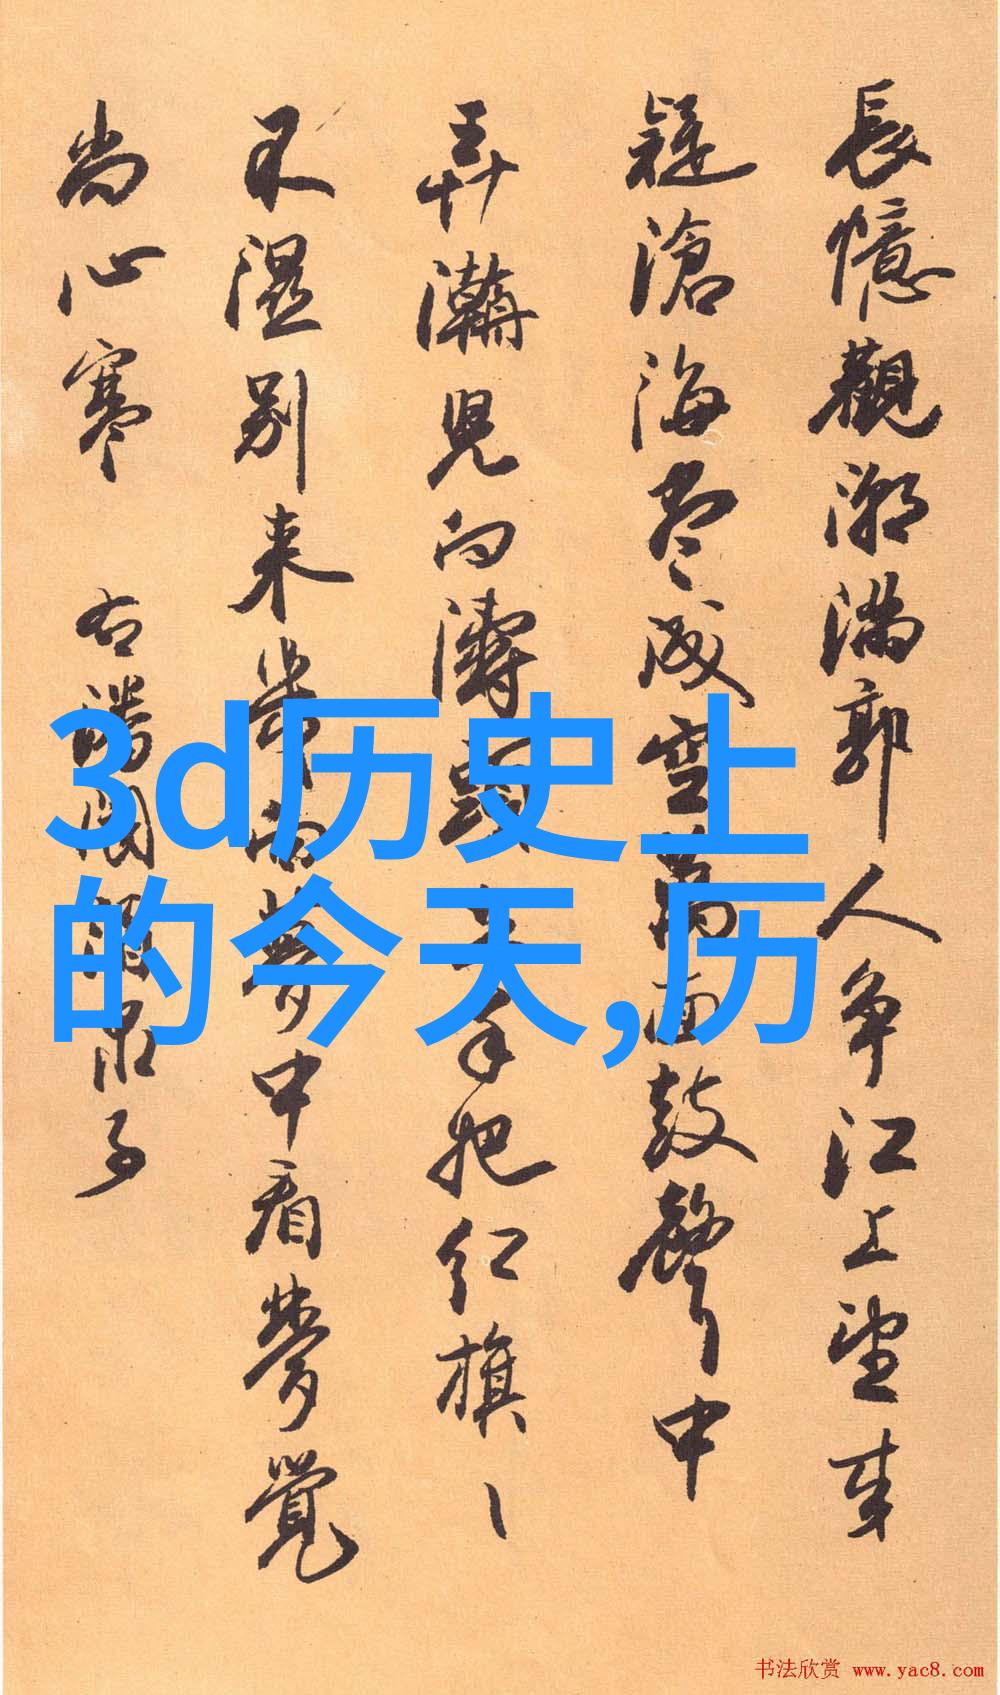 長憶觀潮滿郭人爭江上望来
疑滄海盡成空萬面鼓聲中
弄濤兒向濤頭立手把红旗〻
不濕别来幾向夢中看夢覺
尚心寒 右潘閬酒泉子
3d历史上
的今天,历
书法欣赏 www.yac8.com